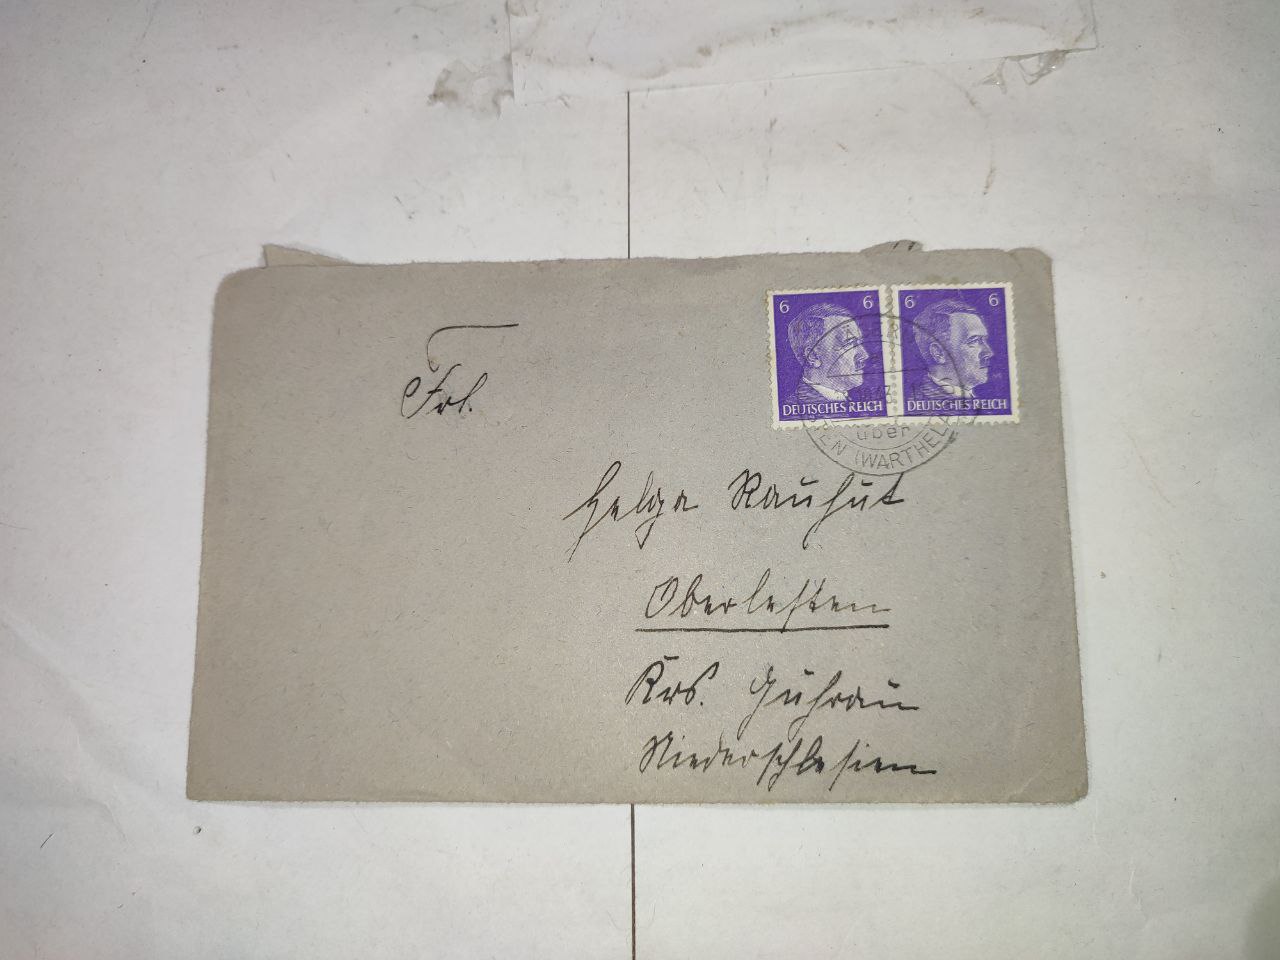 6 6 6 6
DEUTSCHES REICH DEUTSCHES REICH
über
(WARTHELAND)
Frl.
Helga Rauhut
Oberlesten
Krs. Guhrau
Niederschlesien